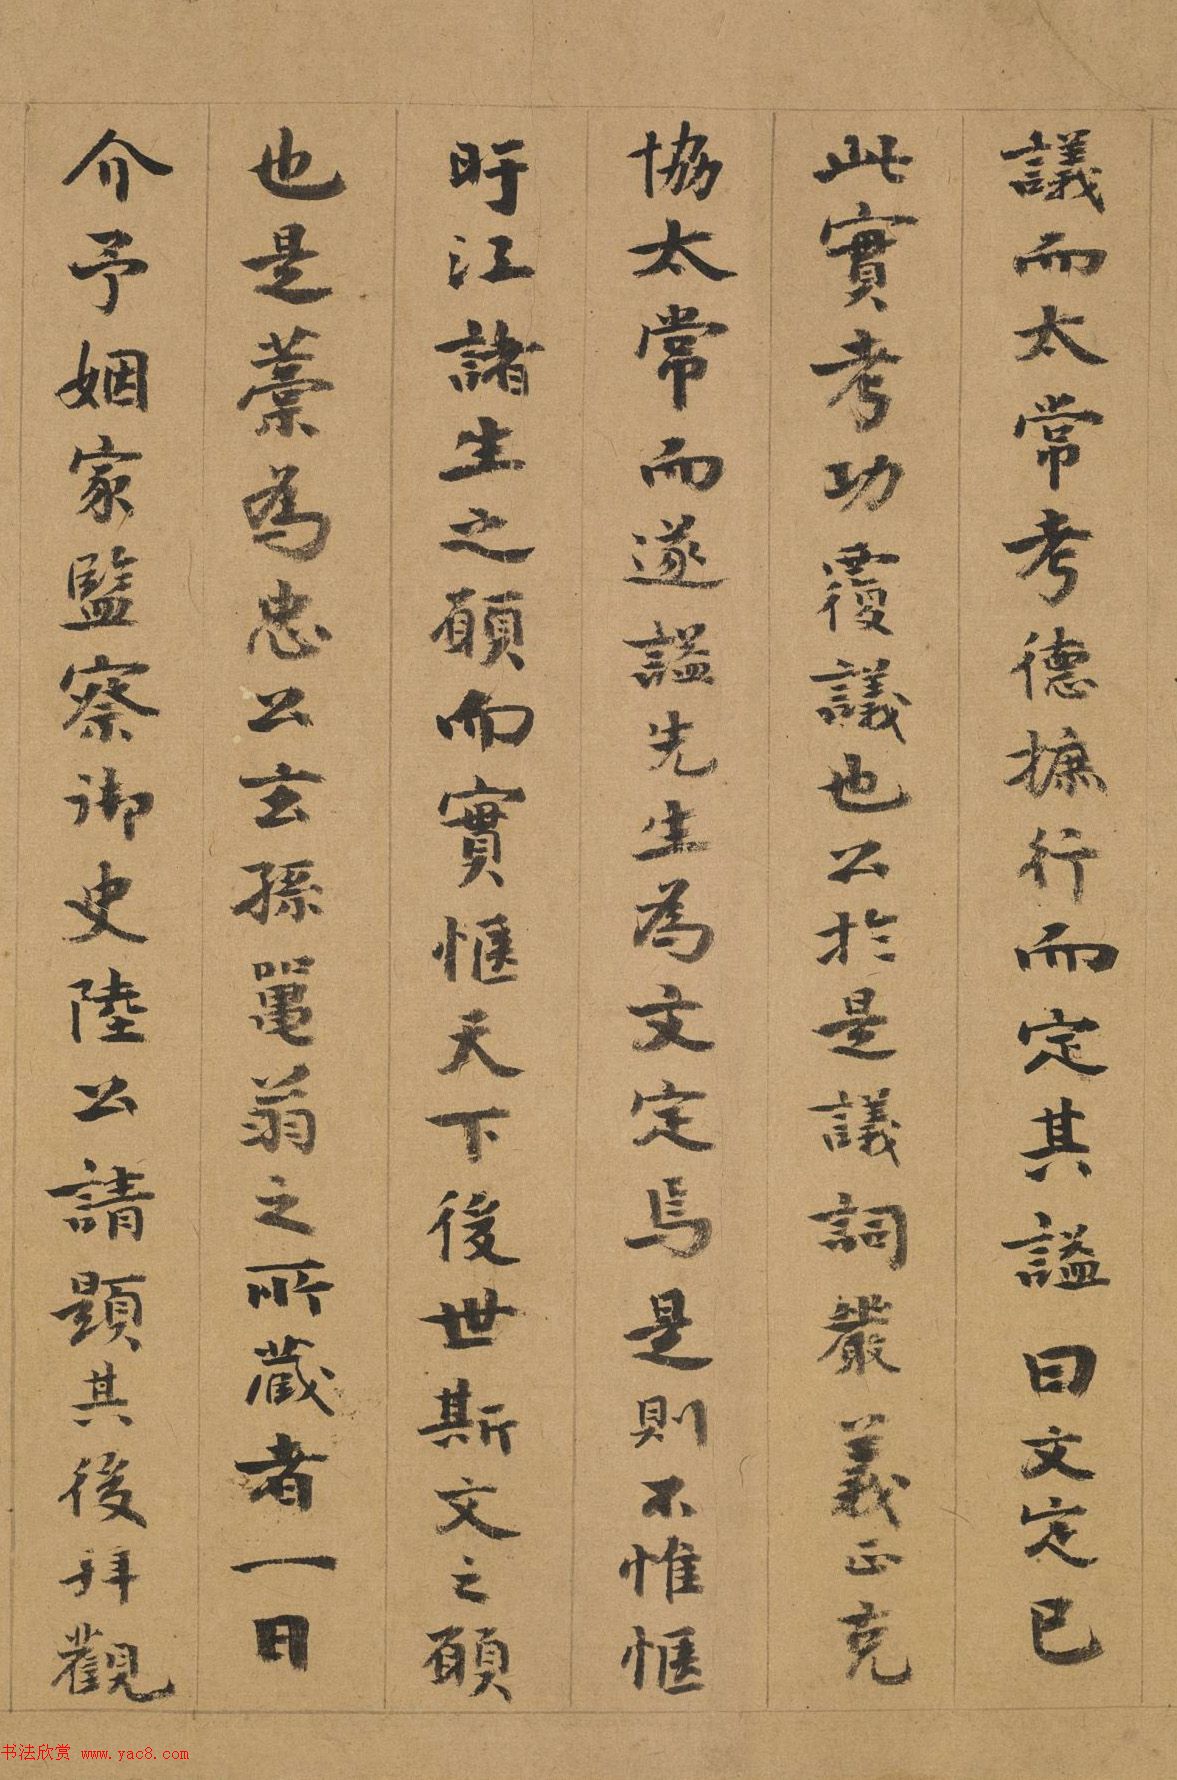 議而太常考德摭行而定其謚曰文定已
此實考功覆議也公於是議詞嚴義正克
協太常而遂謚先生為文定焉是則不惟愜
盱江諸生之願而實愜天下後世斯文之願
也是藁為忠公玄孫翁之所藏者一日
介予姻家監察御史陸公請題其後拜觀
书法欣赏 www.yac8.com